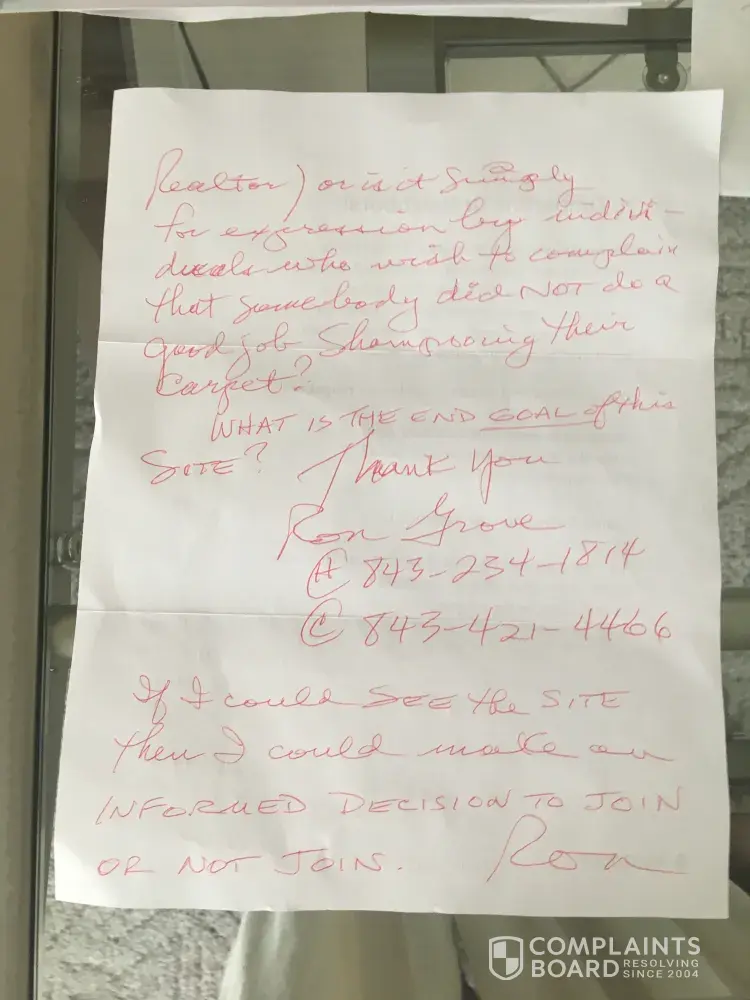 Realtor) or is it simply
for expression by indivi-
duals who wish to complain
that somebody did NOT do a
good job Shampooing their
Carpet?
WHAT IS THE END GOAL of this
SITE? Thank You
Ron Grove
(H) 843-234-1814
(C) 843-421-4466
If I could SEE the SITE
then I could make an
INFORMED DECISION TO JOIN
OR NOT JOIN. Ron
COMPLAINTS
BOARD RESOLVING
SINCE 2004